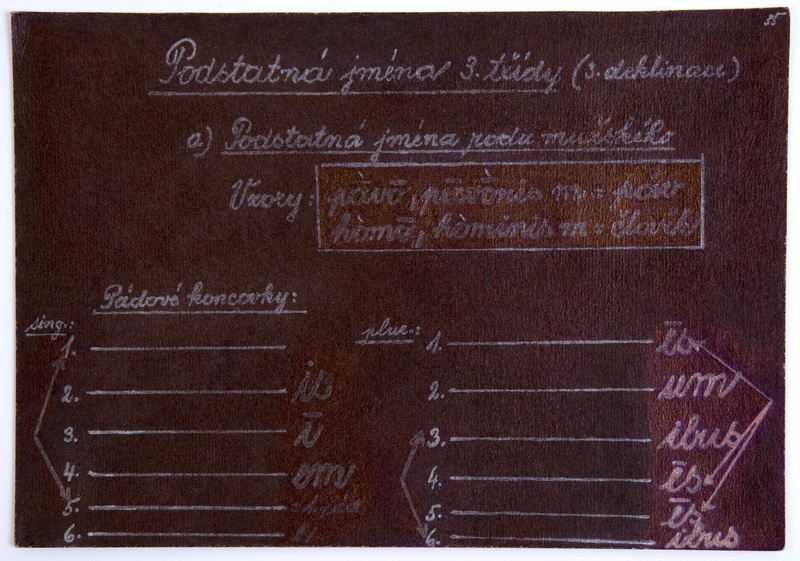 35
Podstatná jména 3. třídy (3. deklinace)
a) Podstatná jména rodu mužského
Vzory: pāvō, pāvōnis m = páv
hŏmō, hŏminis m = člověk
Pádové koncovky:
sing.:
1.
2. is
3. ī
4. em
5. = 1. pád
6.
plur.:
1. ēs
2. um
3. ibus
4. ēs
5. ēs
6. ibus